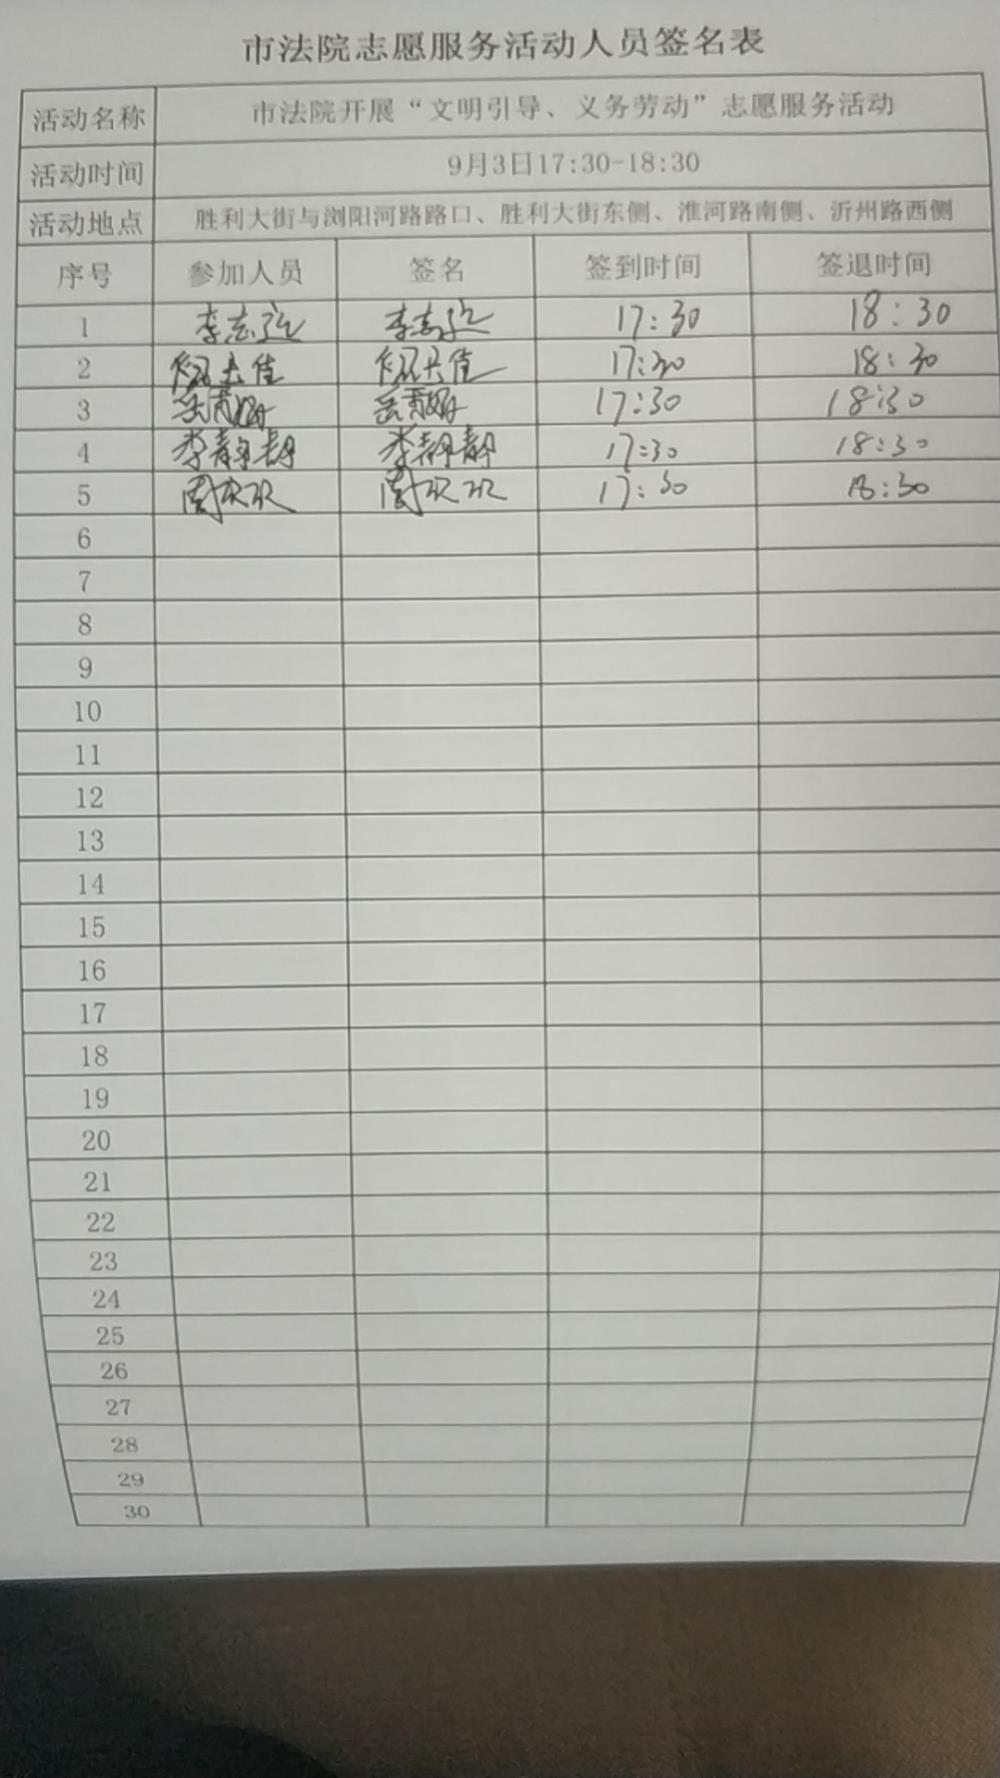 市法院志愿服务活动人员签名表
活动名称 市法院开展“文明引导、义务劳动”志愿服务活动
活动时间 9月3日17:30-18:30
活动地点 胜利大街与浏阳河路路口、胜利大街东侧、淮河路南侧、沂州路西侧
序号 参加人员 签名 签到时间 签退时间
1 李志 李志 17:30 18:30
2 佳 佳 17:30 18:30
3 17:30 18:30
4 李静静 李静静 17:30 18:30
5 周 周 17:30 18:30
6
7
8
9
10
11
12
13
14
15
16
17
18
19
20
21
22
23
24
25
26
27
28
29
30